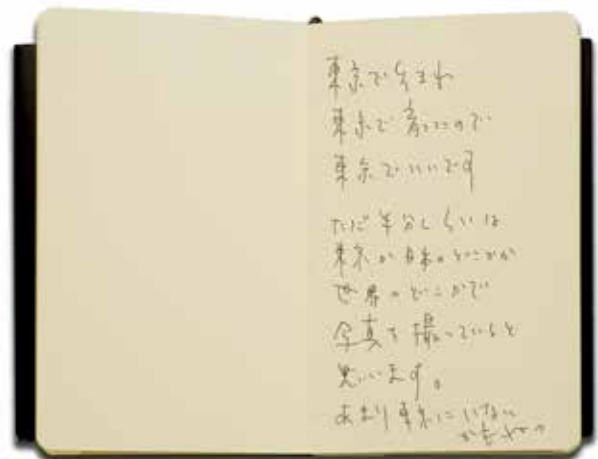 東京で生まれ
東京で育ったので
東京でいいです
ただ半分くらいは
東京か日本のどこかか
世界のどこかで
写真を撮っていると
思います。
あまり東京にいない